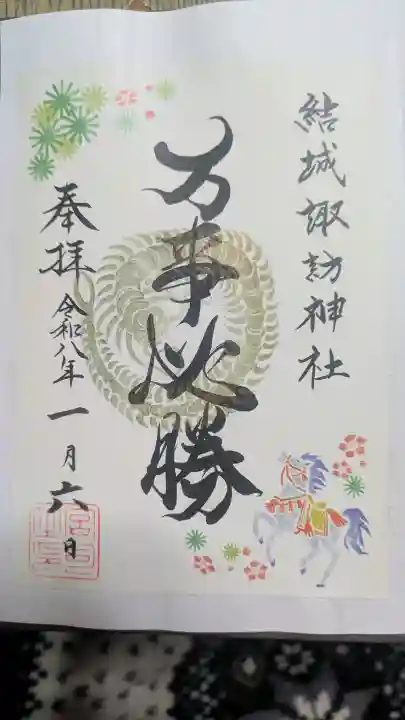 結城諏訪神社
万事必勝
奉拝
令和八年一月六日